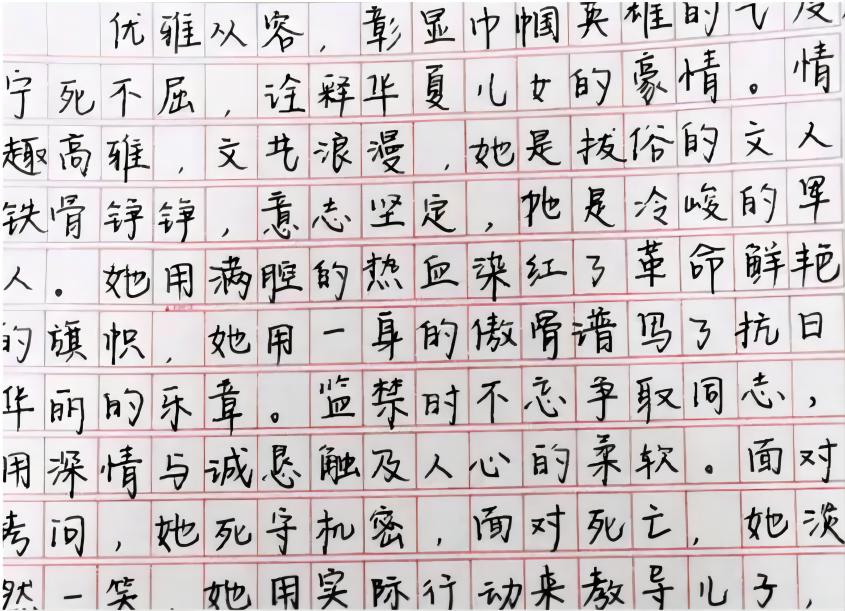 优雅从容，彰显巾帼英雄的飞度
宁死不屈，诠释华夏儿女的豪情。情
趣高雅，文艺浪漫，她是拔俗的文人
铁骨铮铮，意志坚定，她是冷峻的军
人。她用满腔的热血染红了革命鲜艳
的旗帜，她用一身的傲骨谱写了抗日
华丽的乐章。监禁时不忘争取同志，
用深情与诚恳触及人心的柔软。面对
拷问，她死守机密，面对死亡，她淡
然一笑，她用实际行动来教导儿子，